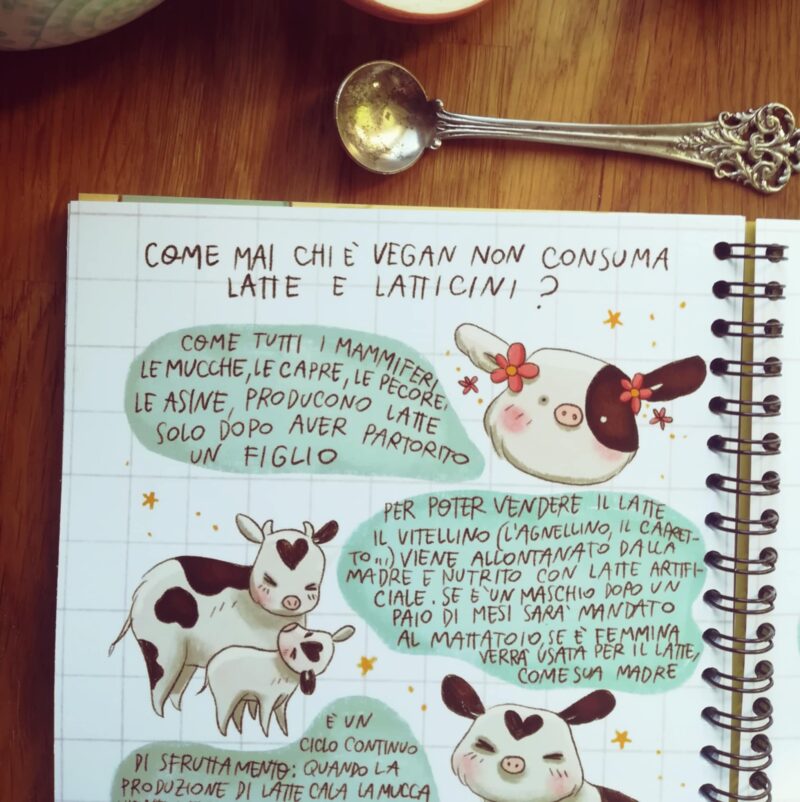 COME MAI CHI È VEGAN NON CONSUMA
LATTE E LATTICINI ?
COME TUTTI I MAMMIFERI,
LE MUCCHE, LE CAPRE, LE PECORE,
LE ASINE, PRODUCONO LATTE
SOLO DOPO AVER PARTORITO
UN FIGLIO
PER POTER VENDERE IL LATTE
IL VITELLINO (L'AGNELLINO, IL CAPRET-
TO...) VIENE ALLONTANATO DALLA
MADRE E NUTRITO CON LATTE ARTIFI-
CIALE. SE È UN MASCHIO DOPO UN
PAIO DI MESI SARÀ MANDATO
AL MATTATOIO, SE È FEMMINA
VERRÀ USATA PER IL LATTE,
COME SUA MADRE
È UN
CICLO CONTINUO
DI SFRUTTAMENTO: QUANDO LA
PRODUZIONE DI LATTE CALA LA MUCCA